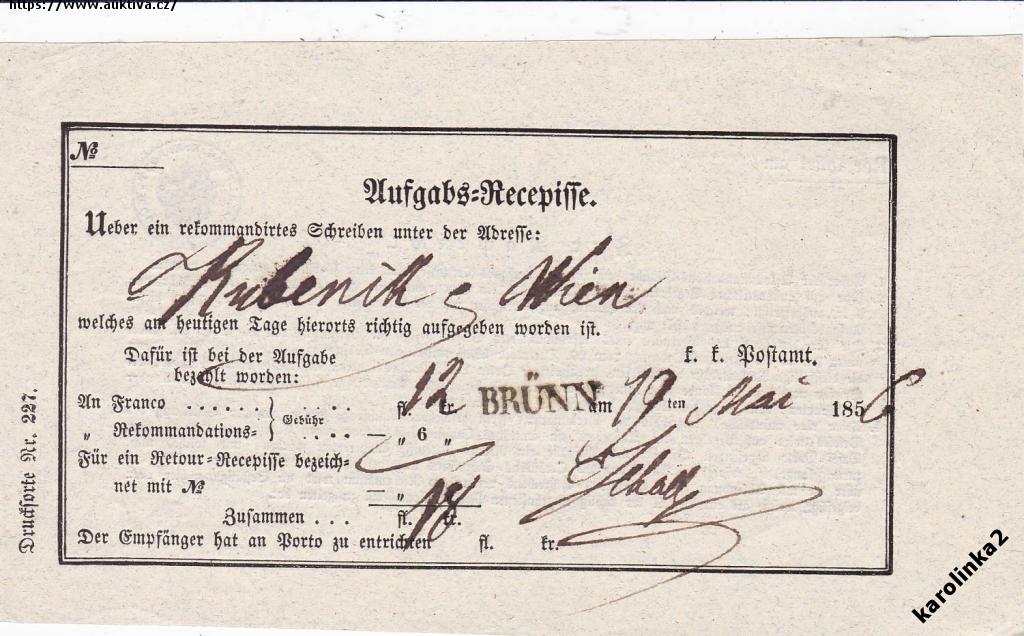 https://www.auktiva.cz/
№
Aufgabs-Recepisse.
Ueber ein rekommandirtes Schreiben unter der Adresse:
Kubenik Wien
welches am heutigen Tage hierorts richtig aufgegeben worden ist.
Dafür ist bei der Aufgabe
bezahlt worden:
k. k. Postamt.
An Franco . . . . . . . . . . fl. 12 kr.
BRÜNN am 19ten Mai 1856
„ Rekommandations- Gebühr . . . . — „ 6 „
Für ein Retour-Recepisse bezeich-
net mit № — „
Zusammen . . . fl. 18 kr.
Der Empfänger hat an Porto zu entrichten fl. kr.
Drucksorte Nr. 227.
karolinka2